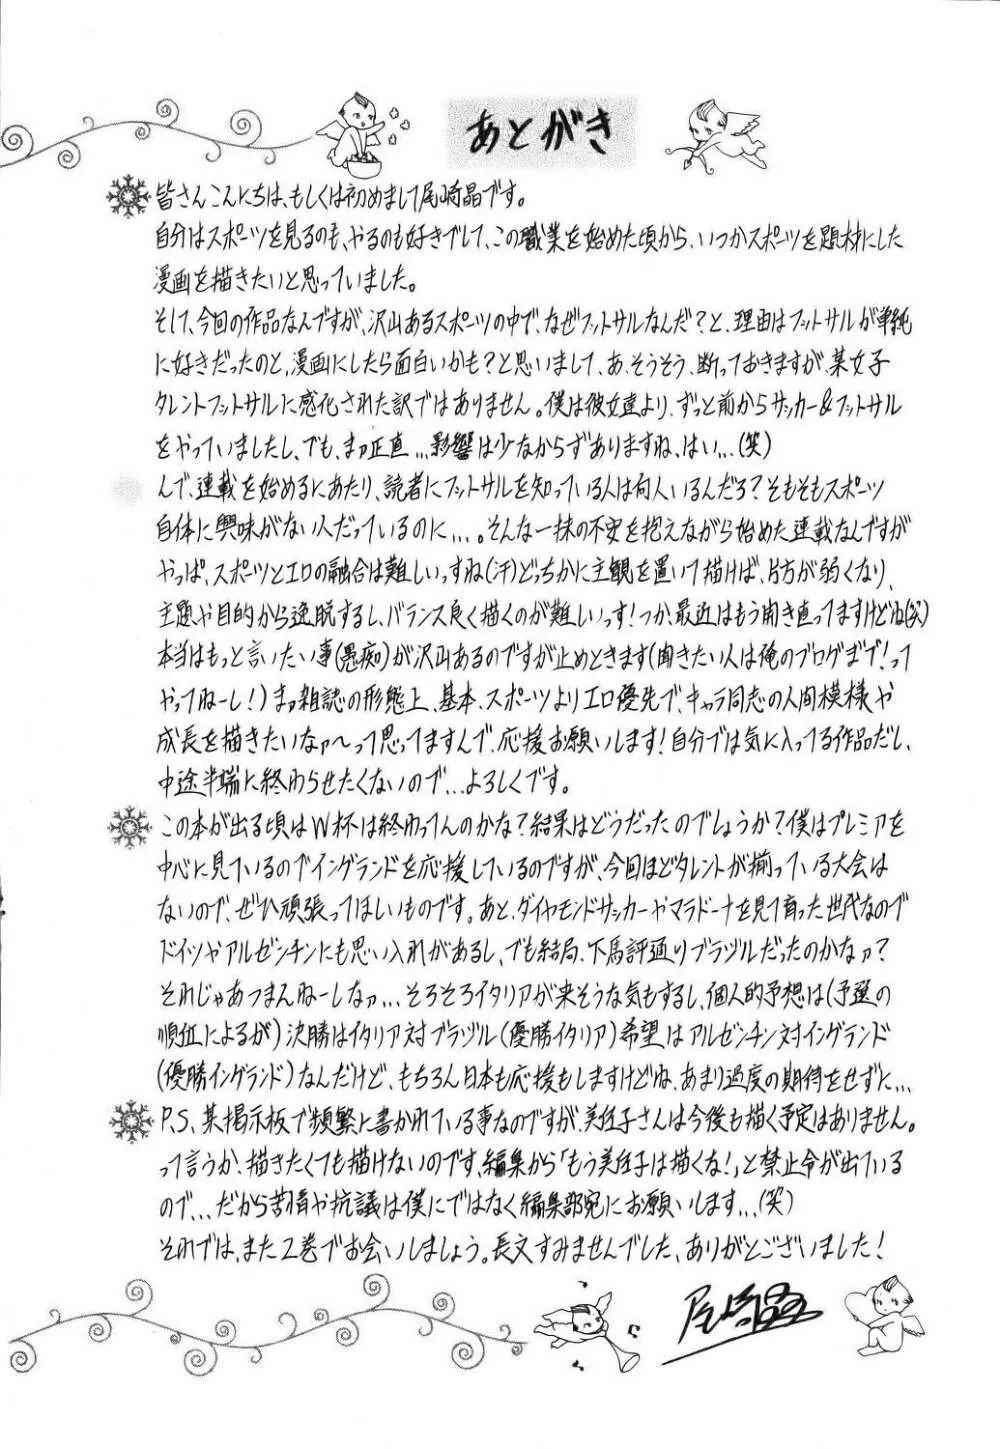 あとがき
皆さんこんにちは、もしくは初めまして尾崎晶です。
自分はスポーツを見るのも、やるのも好きでして、この職業を始めた頃から、いつかスポーツを題材にした
漫画を描きたいと思っていました。
そして、今回の作品なんですが、沢山あるスポーツの中で、なぜフットサルなんだ?と、理由はフットサルが単純
に好きだったのと、漫画にしたら面白いかも?と思いまして、あ、そうそう、断っておきますが、某女子
タレントフットサルに感化された訳ではありません。僕は彼女達より、ずっと前からサッカー&フットサル
をやっていましたし、でも、まァ正直…影響は少なからずありますね、はい…(笑)
んで、連載を始めるにあたり、読者にフットサルを知っている人は何人いるんだろ?そもそもスポーツ
自体に興味がない人だっているのに…。そんな一抹の不安を抱えながら始めた連載なんですが
やっぱ、スポーツとエロの融合は難しいっすね(汗)どっちかに主観を置いて描けば、片方が弱くなり、
主題や目的から逸脱するし、バランス良く描くのが難しいっす!つか、最近はもう開き直ってますけどね(笑)
本当はもっと言いたい事(愚痴)が沢山あるのですが止めときます(聞きたい人は俺のブログまで!って
やってねーし!)まァ雑誌の形態上、基本、スポーツよりエロ優先で、キャラ同志の人間模様や
成長を描きたいなァ〜って思ってますんで、応援お願いします!自分では気に入ってる作品だし、
中途半端に終わらせたくないので…よろしくです。
この本が出る頃はW杯は終わってんのかな?結果はどうだったのでしょうか?僕はプレミアを
中心に見ているのでイングランドを応援しているのですが、今回ほどタレントが揃っている大会は
ないので、ぜひ頑張ってほしいものです。あと、ダイヤモンドサッカーやマラドーナを見て育った世代なので
ドイツやアルゼンチンにも思い入れがあるし、でも結局、下馬評通りブラジルだったのかなァ?
それじゃあつまんねーしなァ…そろそろイタリアが来そうな気もするし、個人的予想は(予選の
順位によるが)決勝はイタリア対ブラジル(優勝イタリア)希望はアルゼンチン対イングランド
(優勝イングランド)なんだけど、もちろん日本も応援もしますけどね、あまり過度の期待をせずに…
P.S、某掲示板で頻繁に書かれている事なのですが、美佳子さんは今後も描く予定はありません。
って言うか、描きたくても描けないのです、編集から「もう美佳子は描くな!」と禁止令が出ている
ので…だから苦情や抗議は僕にではなく編集部宛にお願いします…(笑)
それでは、また2巻でお会いしましょう。長文すみませんでした、ありがとうございました!
尾崎晶